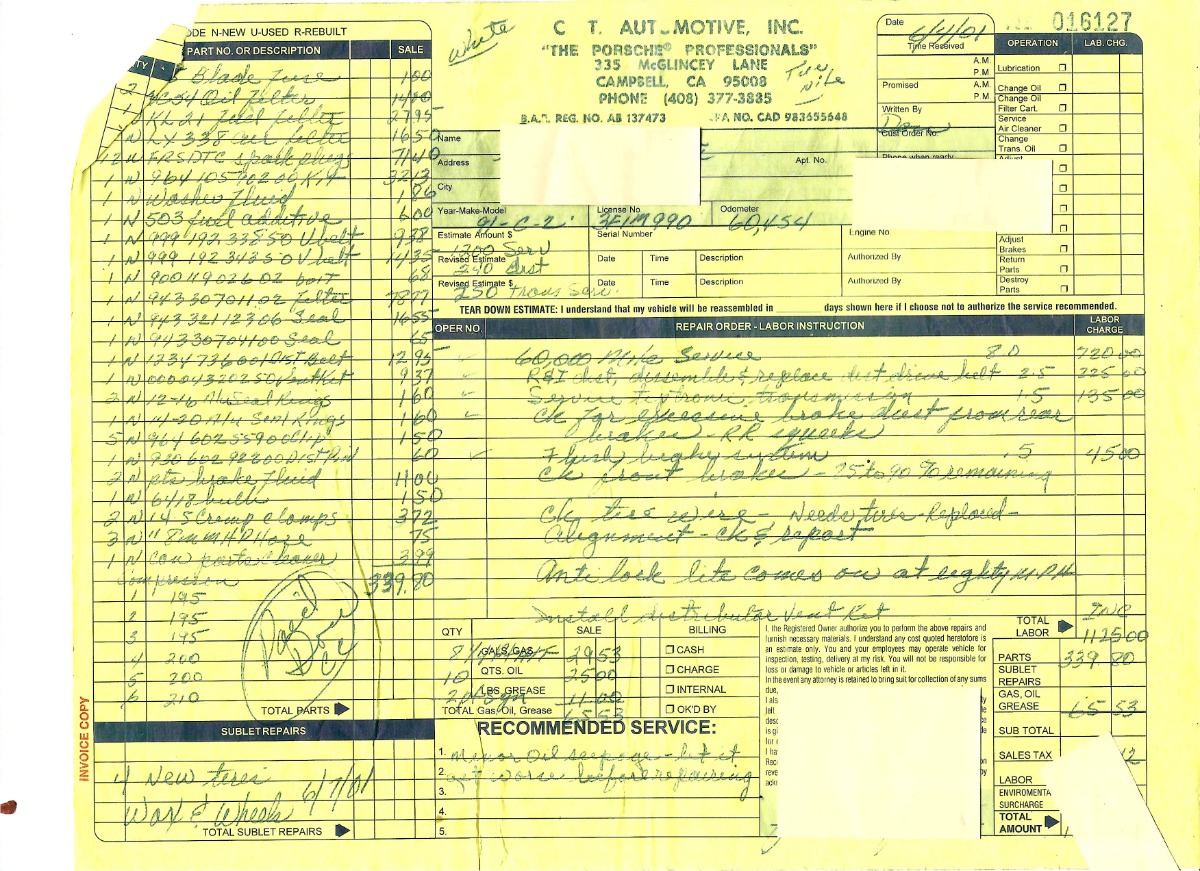 CODE N-NEW U-USED R-REBUILT
PART NO. OR DESCRIPTION SALE
Blade Fuse 1 00
Oil filter 14 00
KL 21 fuel filter 27 95
N LX 338 air filter 16 50
12 N FR5DTC spark plugs 71 40
1 N 964 105 902 00 Kit 32 13
1 N Washer Fluid 1 86
1 N 503 fuel additive 6 00
1 N 999 192 338 50 V belt 9 38
1 N 999 192 343 50 V belt 14 35
1 N 900 119 026 02 bolt 68
1 N 943 307 011 02 filter 78 77
1 N 943 321 123 06 Seal 16 55
1 N 943 307 041 00 Seal 65
1 N 123 473 6001 Dist belt 12 95
1 N 000 043 202 50 Vent Ket 9 37
2 N 12-16 Alu Seal Rings 1 60
1 N 14-20 Alu Seal Rings 1 60
5 N 964 602 559 00 Clip 1 50
1 N 930 602 922 00 Dist Pin 60
2 N pts brake fluid 11 00
1 N 6418 bulb 1 50
2 N 14 5 Crimp Clamps 3 72
3 N " 8mm HP Hose 75
1 N can parts cleaner 3 99
Compression 339.80
1 195
2 195
3 195
4 200
5 200
6 210
TOTAL PARTS
SUBLET REPAIRS
4 New tires
Wax & Wheels 6/7/01
TOTAL SUBLET REPAIRS
INVOICE COPY
White
C T. AUTOMOTIVE, INC.
"THE PORSCHE® PROFESSIONALS"
335 McGLINCEY LANE
CAMPBELL, CA 95008
PHONE (408) 377-3835
B.A.R. REG. NO. AB 137473 EPA NO. CAD 983655648
Date 6/4/01
Time Received
A.M.
P.M.
Promised A.M.
P.M.
Written By
Cust Order No.
Phone when ready
No 016127
OPERATION LAB. CHG.
Lubrication
Change Oil
Change Oil
Filter Cart.
Service
Air Cleaner
Change
Trans. Oil
Adjust
Adjust
Brakes
Return
Parts
Destroy
Parts
Name
Address Apt. No.
City
Year-Make-Model License No Odometer
91-C-2 3FIM990 60,454
Estimate Amount $ Serial Number Engine No
1200 Serv
Revised Estimate Date Time Description Authorized By
240 dist
Revised Estimate $ Date Time Description Authorized By
250 Trans Serv.
TEAR DOWN ESTIMATE: I understand that my vehicle will be reassembled in ______ days shown here if I choose not to authorize the service recommended.
OPER NO. REPAIR ORDER - LABOR INSTRUCTION LABOR CHARGE
60,000 Mile Service 8.0 720 00
R&I dist, dissemble & replace dist drive belt 2.5 225 00
Service tiptronic transmission 1.5 135 00
Ck for excessive brake dust from rear
brakes - RR squeeks
Flush brake system .5 45 00
Ck front brakes - 75 to 90 % remaining
Ck tire wire - Needs tires - Replaced -
Alignment - Ck & report
Anti lock lite comes on at eighty M.P.H
Install distributor Vent Ket INC
QTY SALE BILLING
GALS. GAS 29 53 CASH
10 QTS. OIL 25 00 CHARGE
LBS. GREASE 11.00 INTERNAL
TOTAL Gas, Oil, Grease 65 53 OK'D BY
RECOMMENDED SERVICE:
1. Minor Oil seepage - let it
2. get worse before repairing
3.
4.
5.
I, the Registered Owner authorize you to perform the above repairs and
furnish necessary materials. I understand any cost quoted heretofore is
an estimate only. You and your employees may operate vehicle for
inspection, testing, delivery at my risk. You will not be responsible for
loss or damage to vehicle or articles left in it.
In the event any attorney is retained to bring suit for collection of any sums
due,
TOTAL LABOR 1125 00
PARTS 339 80
SUBLET REPAIRS
GAS, OIL GREASE 65 53
SUB TOTAL
SALES TAX
LABOR
ENVIROMENTA
SURCHARGE
TOTAL AMOUNT